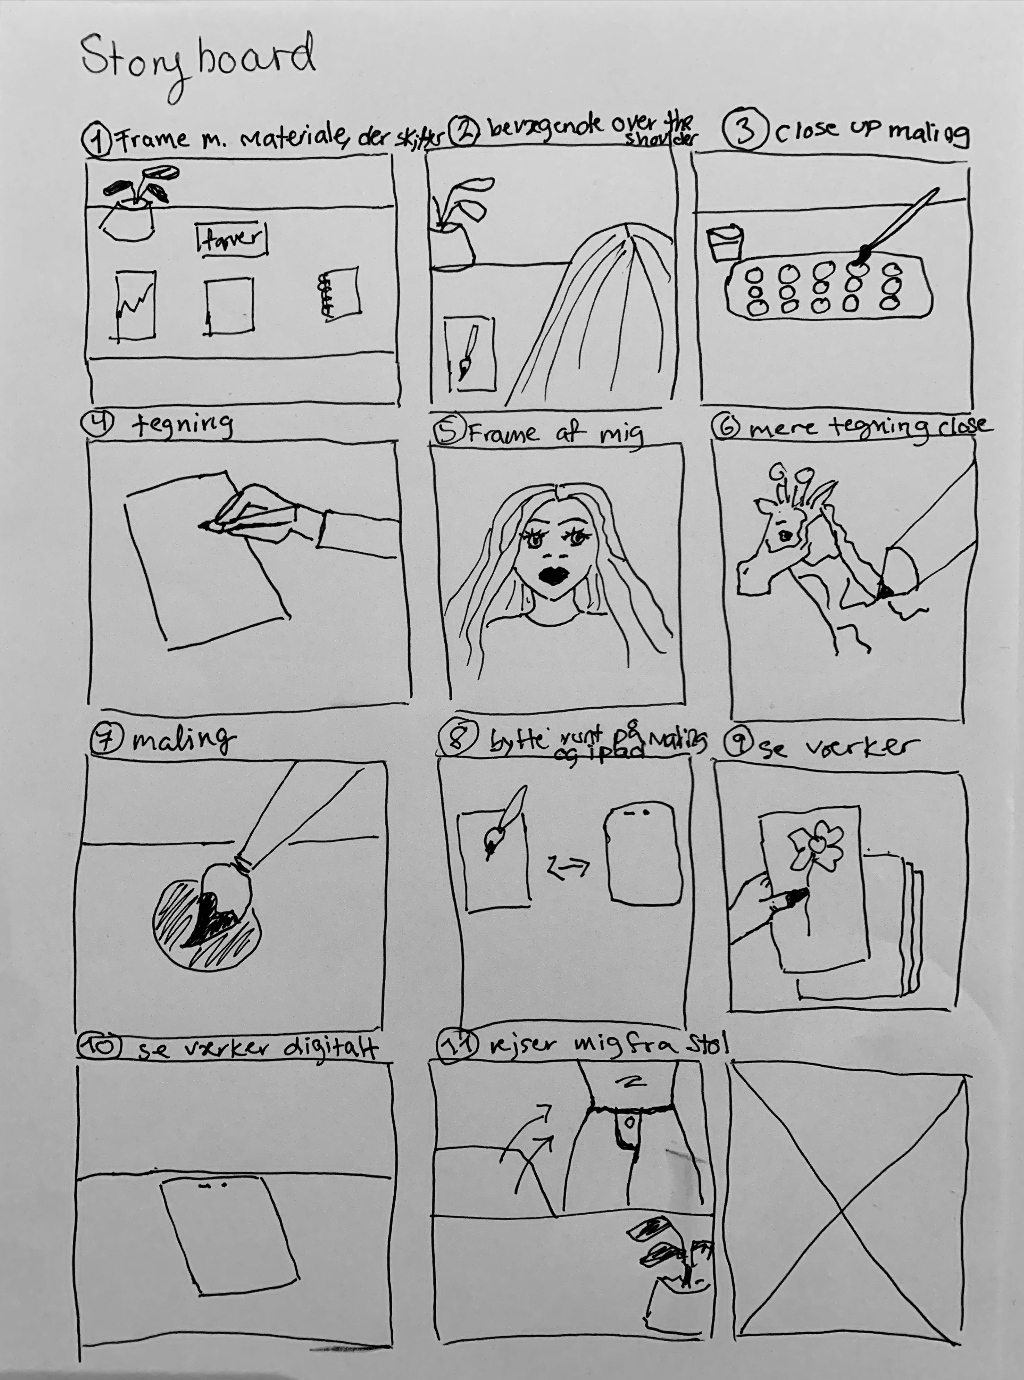 Storyboard
1 Frame m. materiale, der skifter
2 bevægende over the
shoulder
3 close up maling
farver
4 tegning
5 Frame af mig
6 mere tegning close
7 maling
8 bytte rundt på maling
og ipad
9 se værker
10 se værker digitalt
11 rejser mig fra stol